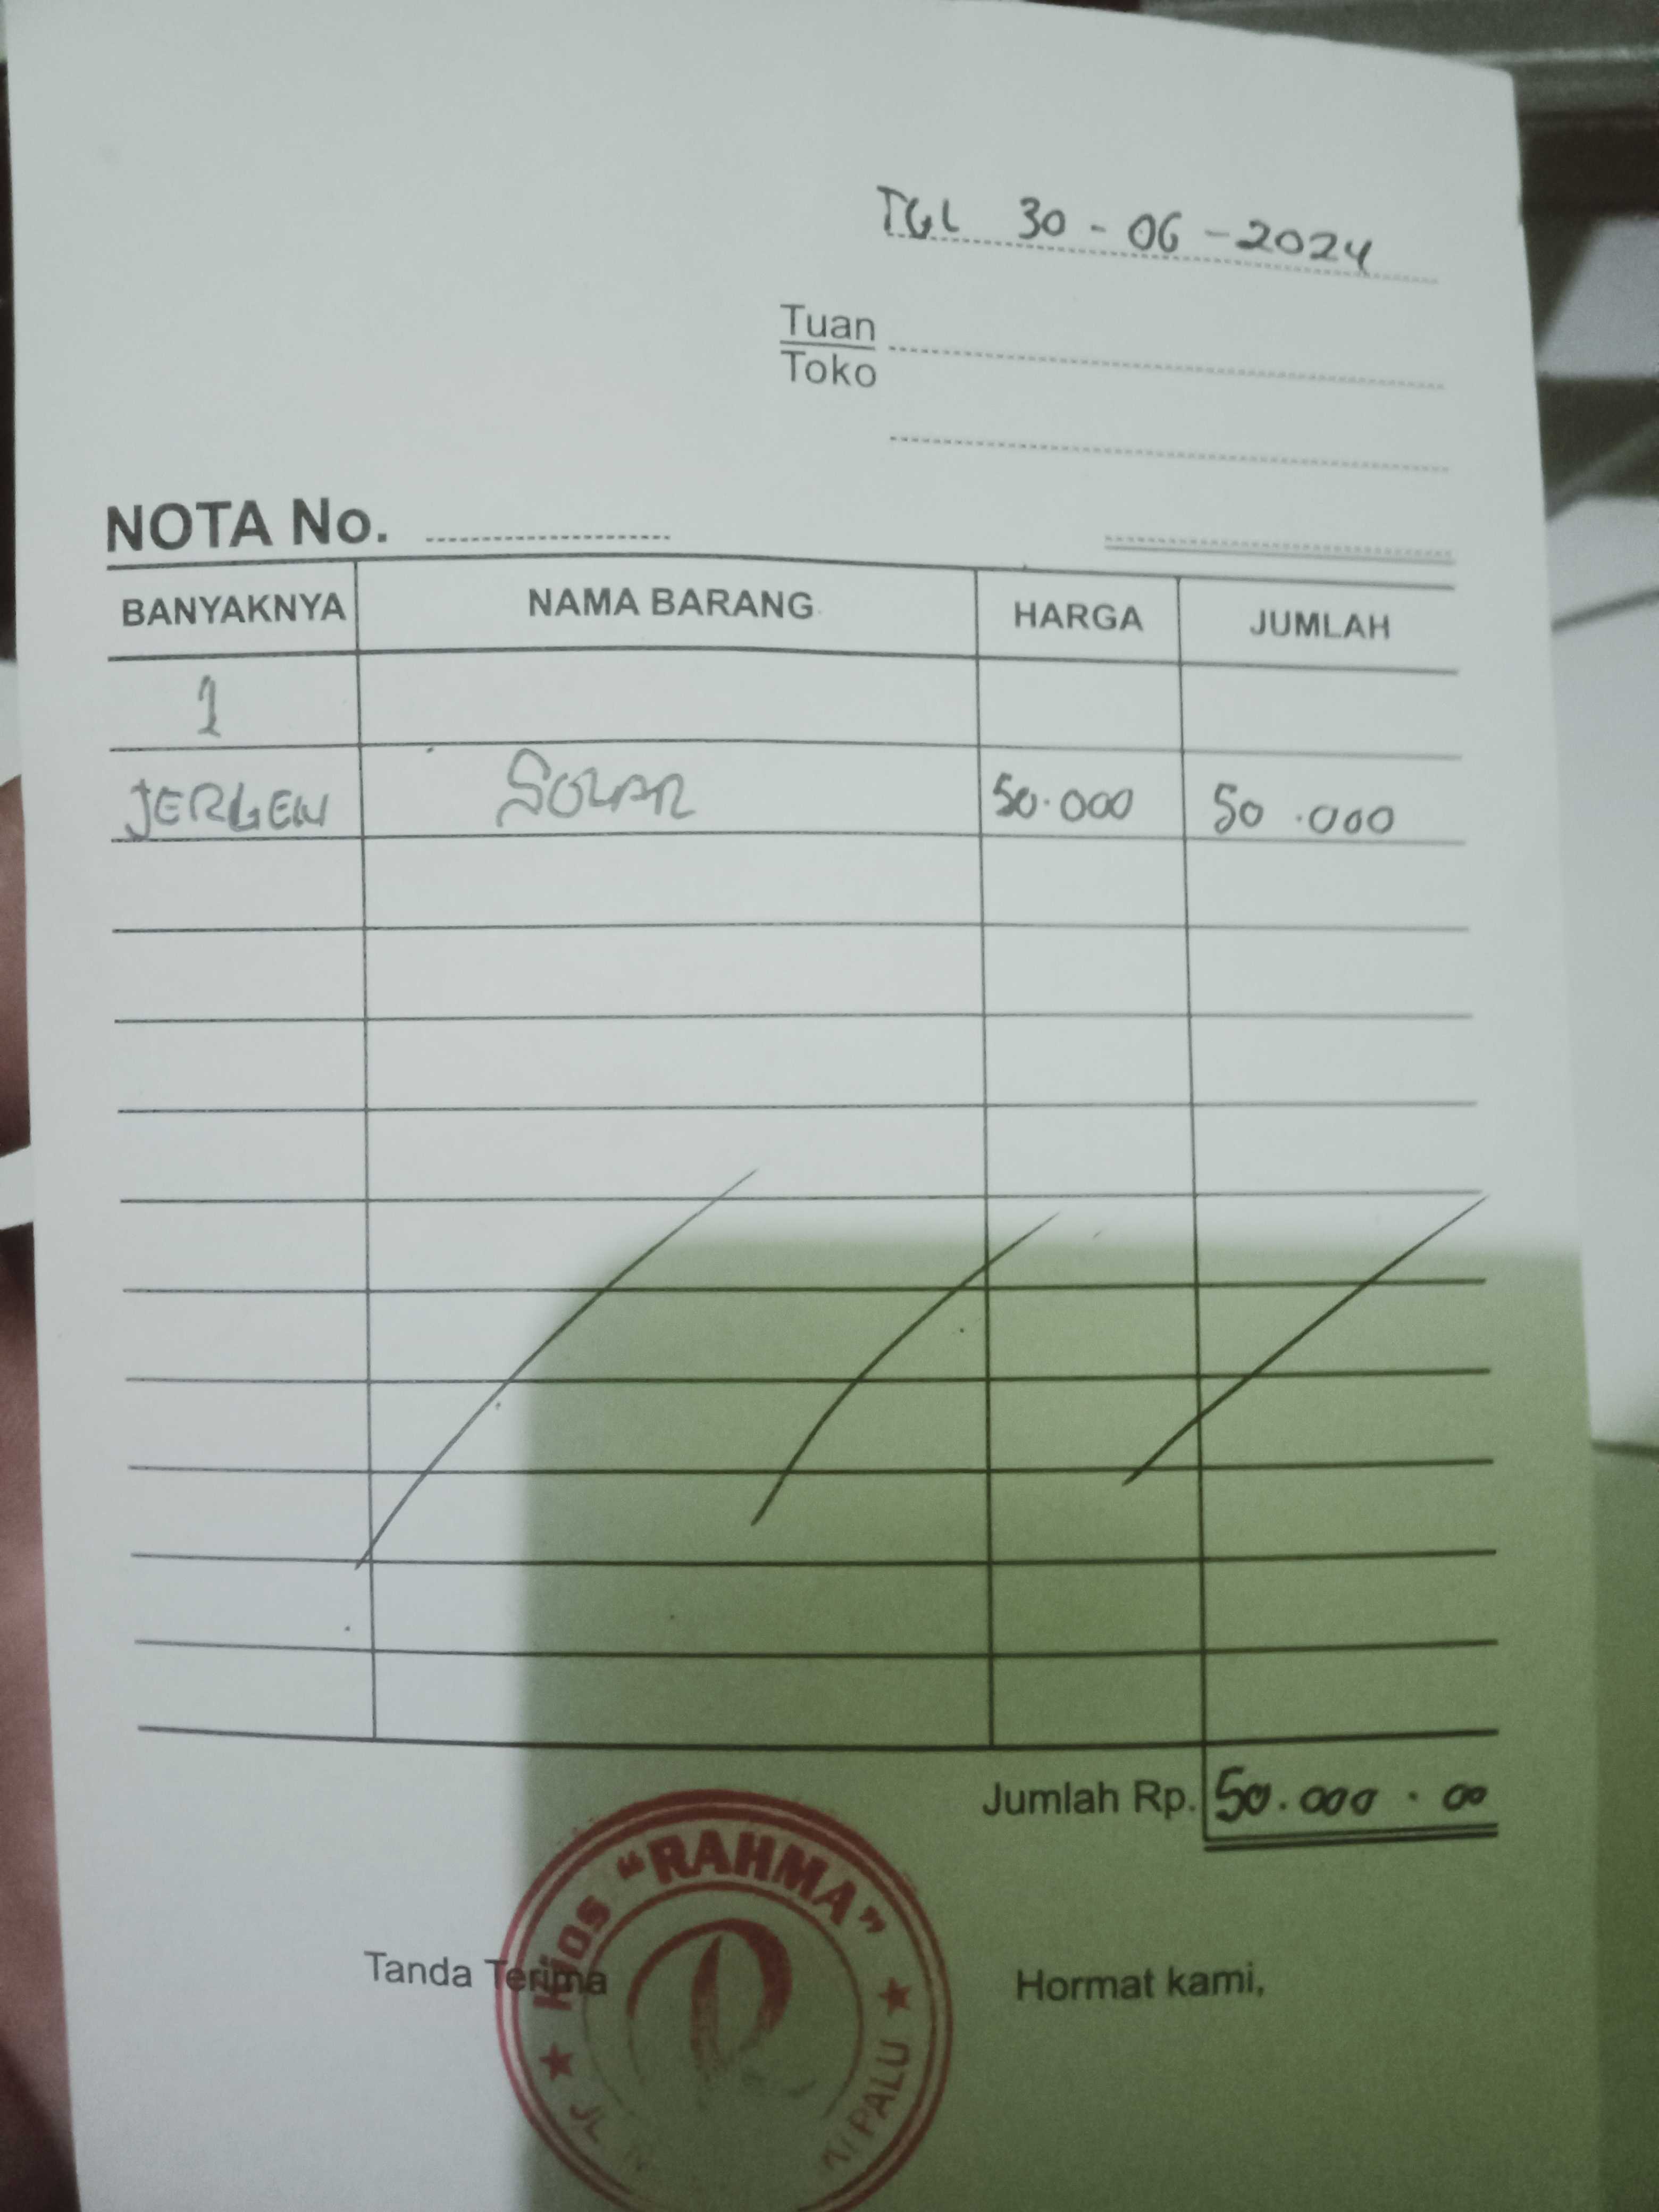 TGL 30-06-2024
Tuan
Toko
NOTA No.
BANYAKNYA NAMA BARANG HARGA JUMLAH
1
JERGEN SOLAR 50.000 50.000
Jumlah Rp. 50.000.00
Tanda Terima Hormat kami,
Kios "RAHMA"
JL PALU